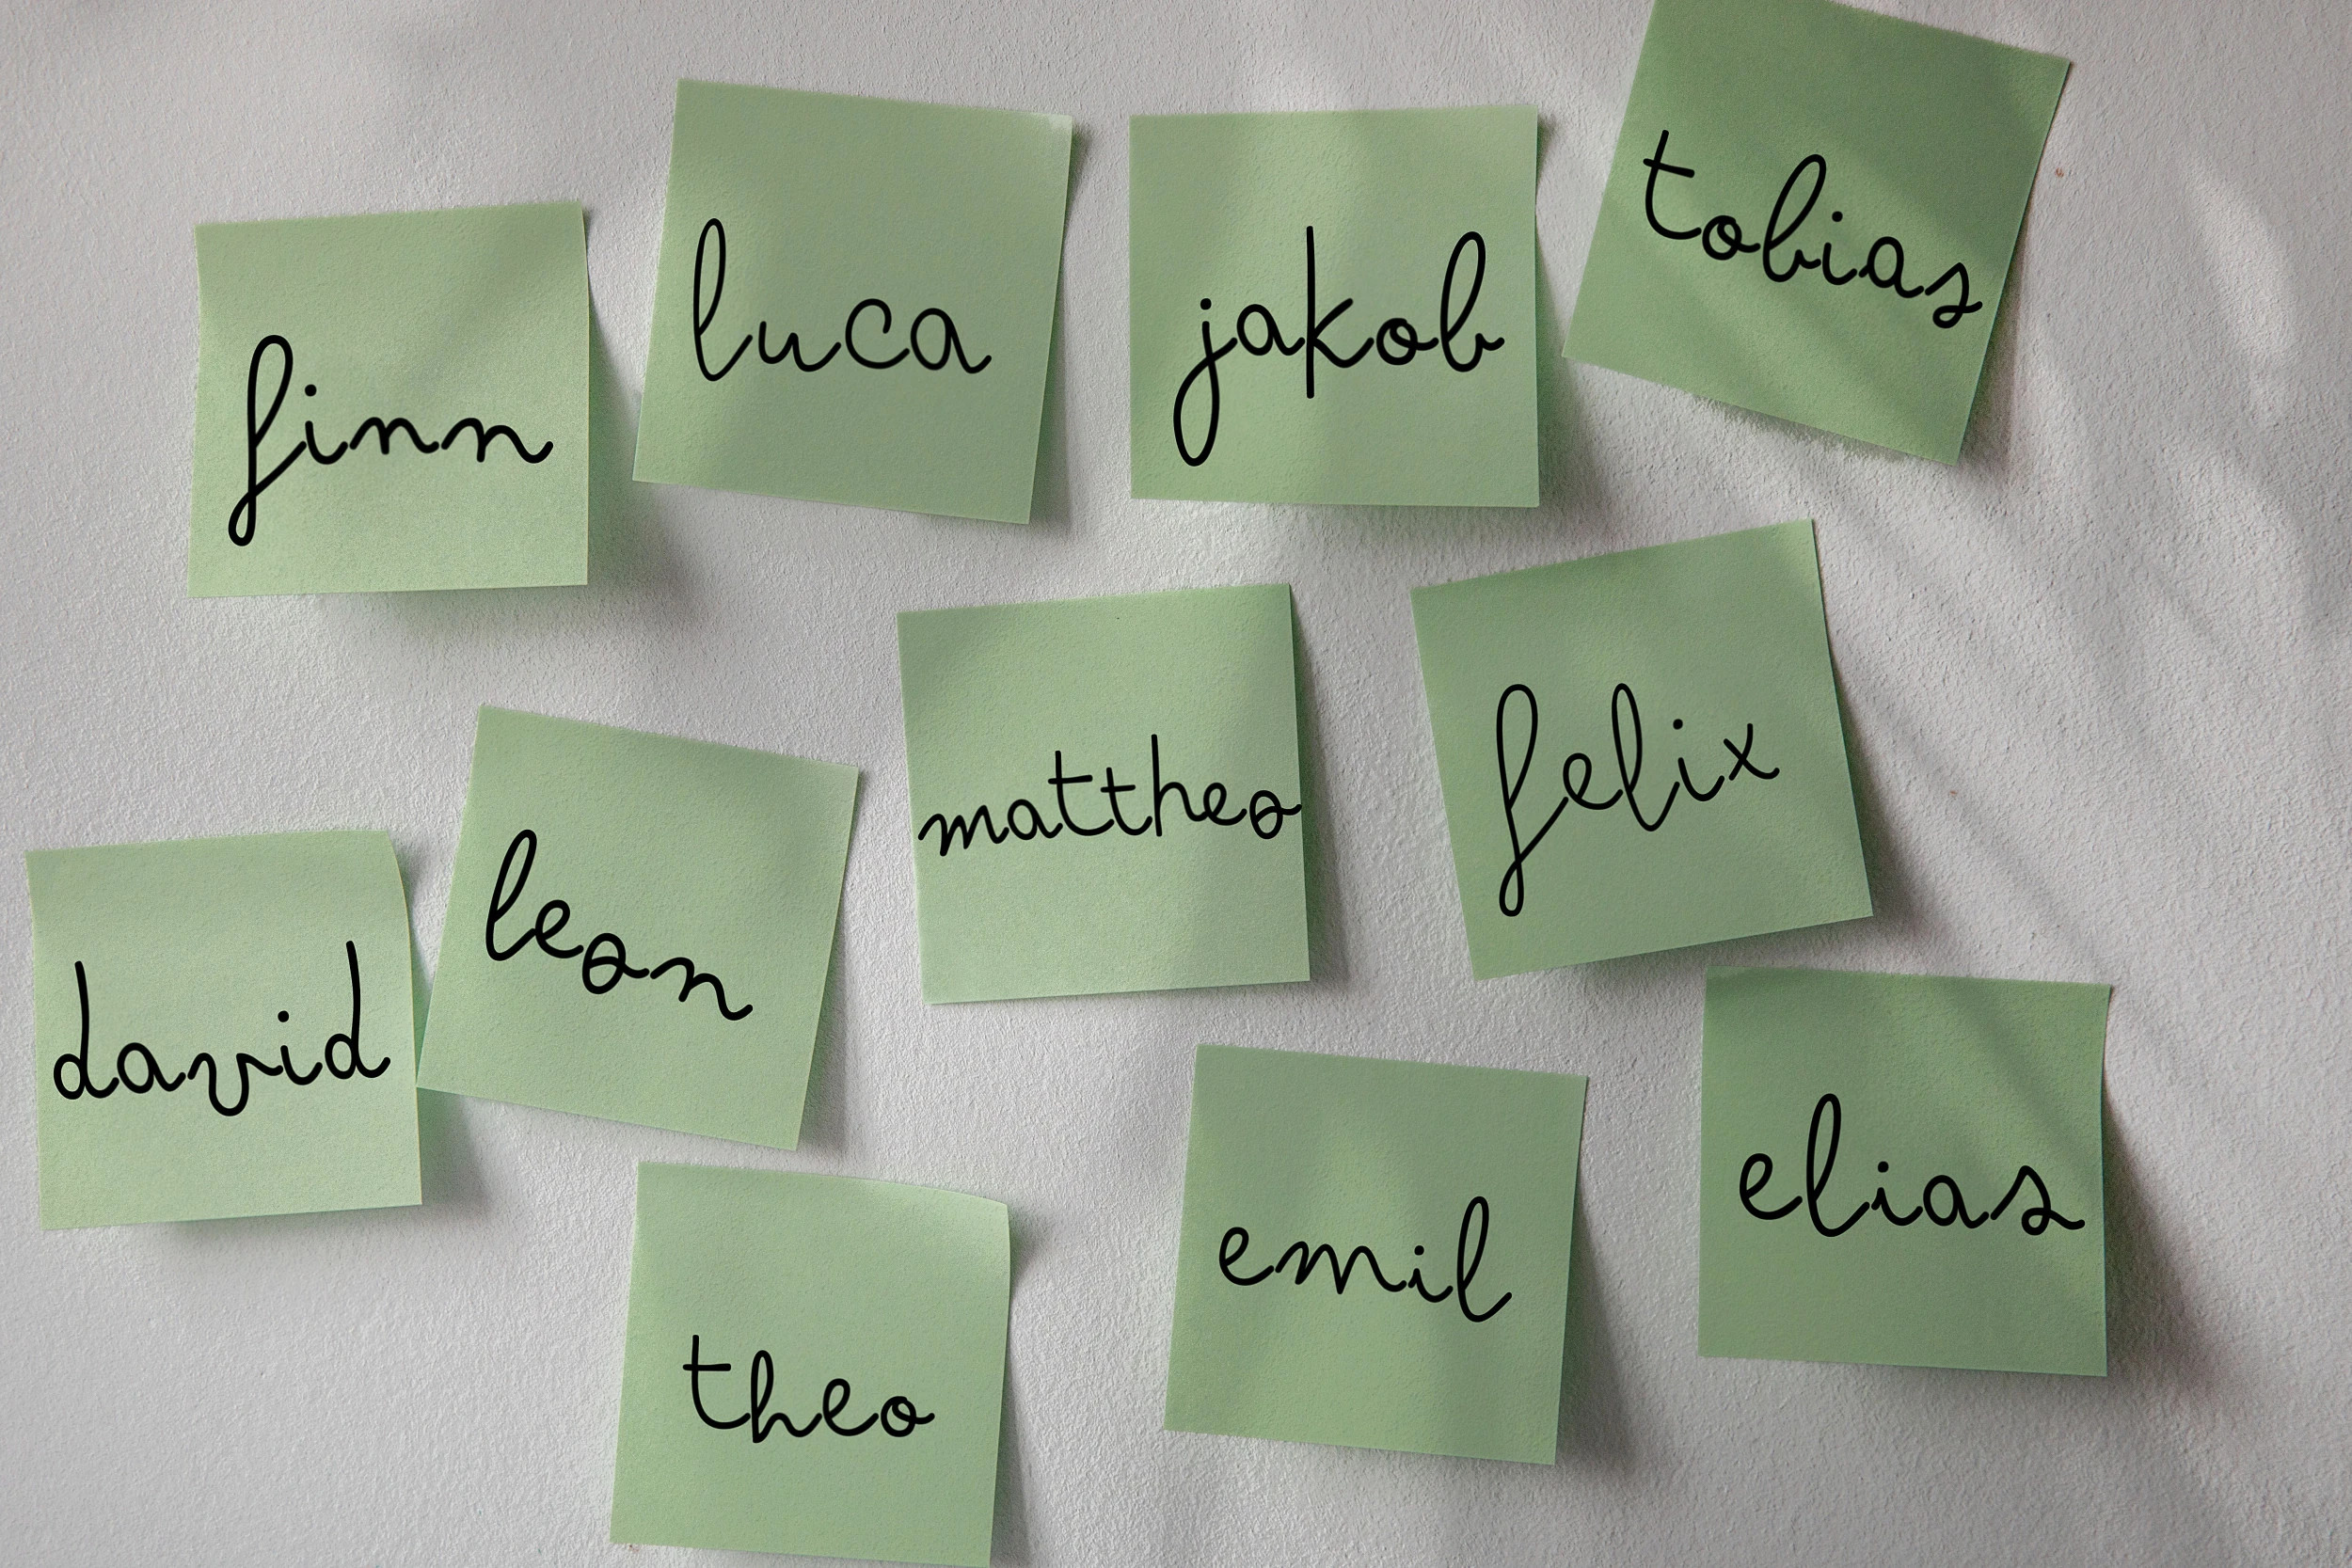 finn
luca
jakob
tobias
david
leon
mattheo
felix
theo
emil
elias